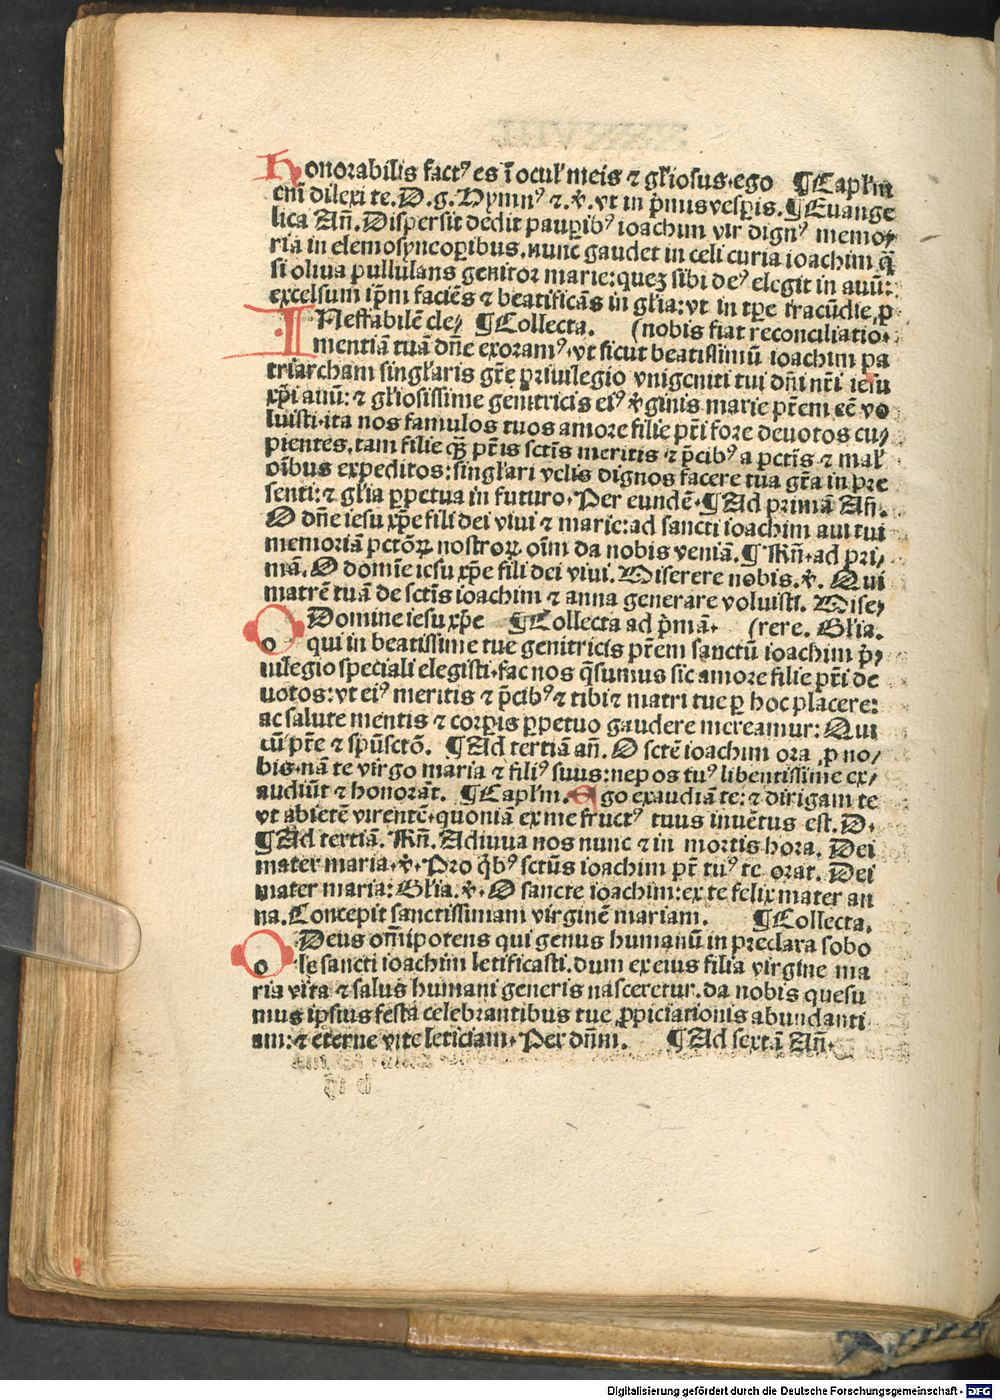 Honorabilis factꝰ es ī oculł meis ⁊ głiosus·ego ¶Capłm
eni᷑ dilexi te. D. g. Hymnꝰ ⁊. ℣. vt in p̄mus vesꝑis. ¶Euange
lica Añ. Dispersit dedit pauꝑibꝰ ioachim vir dignꝰ memo⸗
ria in elemosyncoꝑibus. nunc gaudet in celi curia ioachim q̄
si oliua pullulans genitor marie: quez sibi deꝰ elegit in auū:
excelsum ip̄m faciēs ⁊ beatificās in głia: vt in tꝑe iracūdie ꝓ
INeffabilē cle⸗ ¶Collecta. (nobis fiat reconciliatio.
mentiā tuā dn̄e exoramꝰ, vt sicut beatissimū ioachim pa
triarcham singłaris gr̄e priuilegio vnigeniti tui dn̄i nr̄i iesu
xp̄i auū: ⁊ głiosissime genitricis eiꝰ ꝟginis marie pr̄em ee᷑ vo
luisti·ita nos famulos tuos amore filie pr̄i fore deuotos cu⸗
pientes, tam filie qꝫ pr̄is sctīs meritis ⁊ p̄cibꝰ a pctīs ⁊ mał
oībus expeditos: singłari velis dignos facere tua gr̄a in pre
senti: ⁊ głia ꝑpetua in futuro. Per eundē. ¶Ad primā Añ.
O dn̄e iesu xp̄e fili dei viui ⁊ marie: ad sancti ioachim aui tui
memoriā pctōꝝ nostroꝝ oīm da nobis veniā. ¶Rn̄. ad pri⸗
mā. O domīe iesu xp̄e fili dei viui. Miserere nobis. ℣. Qui
matrē tuā de sctīs ioachim ⁊ anna generare voluisti. Mise⸗
ODomine iesu xp̄e ¶Collecta ad p̄mā. (rere. Głia.
o qui in beatissime tue genitricis pr̄em sanctū ioachim p̄⸗
uilegio speciali elegisti·fac nos q̄sumus sic amore filie pr̄i de
uotos: vt eiꝰ meritis ⁊ p̄cibꝰ ⁊ tibi ⁊ matri tue ꝑ hoc placere:
ac salute mentis ⁊ corꝑis ꝑpetuo gaudere mereamur: Qui
cū pr̄e ⁊ spūsctō. ¶Ad tertiā añ. O sctē ioachim ora ꝓ no⸗
bis·nā te virgo maria ⁊ filiꝰ suus: nepos tuꝰ libentissime ex⸗
audiūt ⁊ honorāt. ¶Capłm. Ego exaudiā te: ⁊ dirigam te
vt abietē virentē·quoniā ex me fructꝰ tuus inuētus est. D.
¶Ad tertiā. Rn̄. Adiuua nos nunc ⁊ in mortis hora. Dei
mater maria. ℣. Pro q̄bꝰ sctūs ioachim pr̄ tuꝰ te orat. Dei
mater maria: Głia. ℣. O sancte ioachim: ex te felix mater an
na. Concepit sanctissimam virginē mariam. ¶Collecta.
ODeus om̄ipotens qui genus humanū in preclara sobo
o le sancti ioachim letificasti. dum ex eius filia virgine ma
ria vita ⁊ salus humani generis nasceretur. da nobis quesu
mus ipsius festa celebrantibus tue ꝓpiciationis abundanti
am: ⁊ eterne vite leticiam. Per dn̄m. ¶Ad sextā Añ.
Digitalisierung gefördert durch die Deutsche Forschungsgemeinschaft - DFG